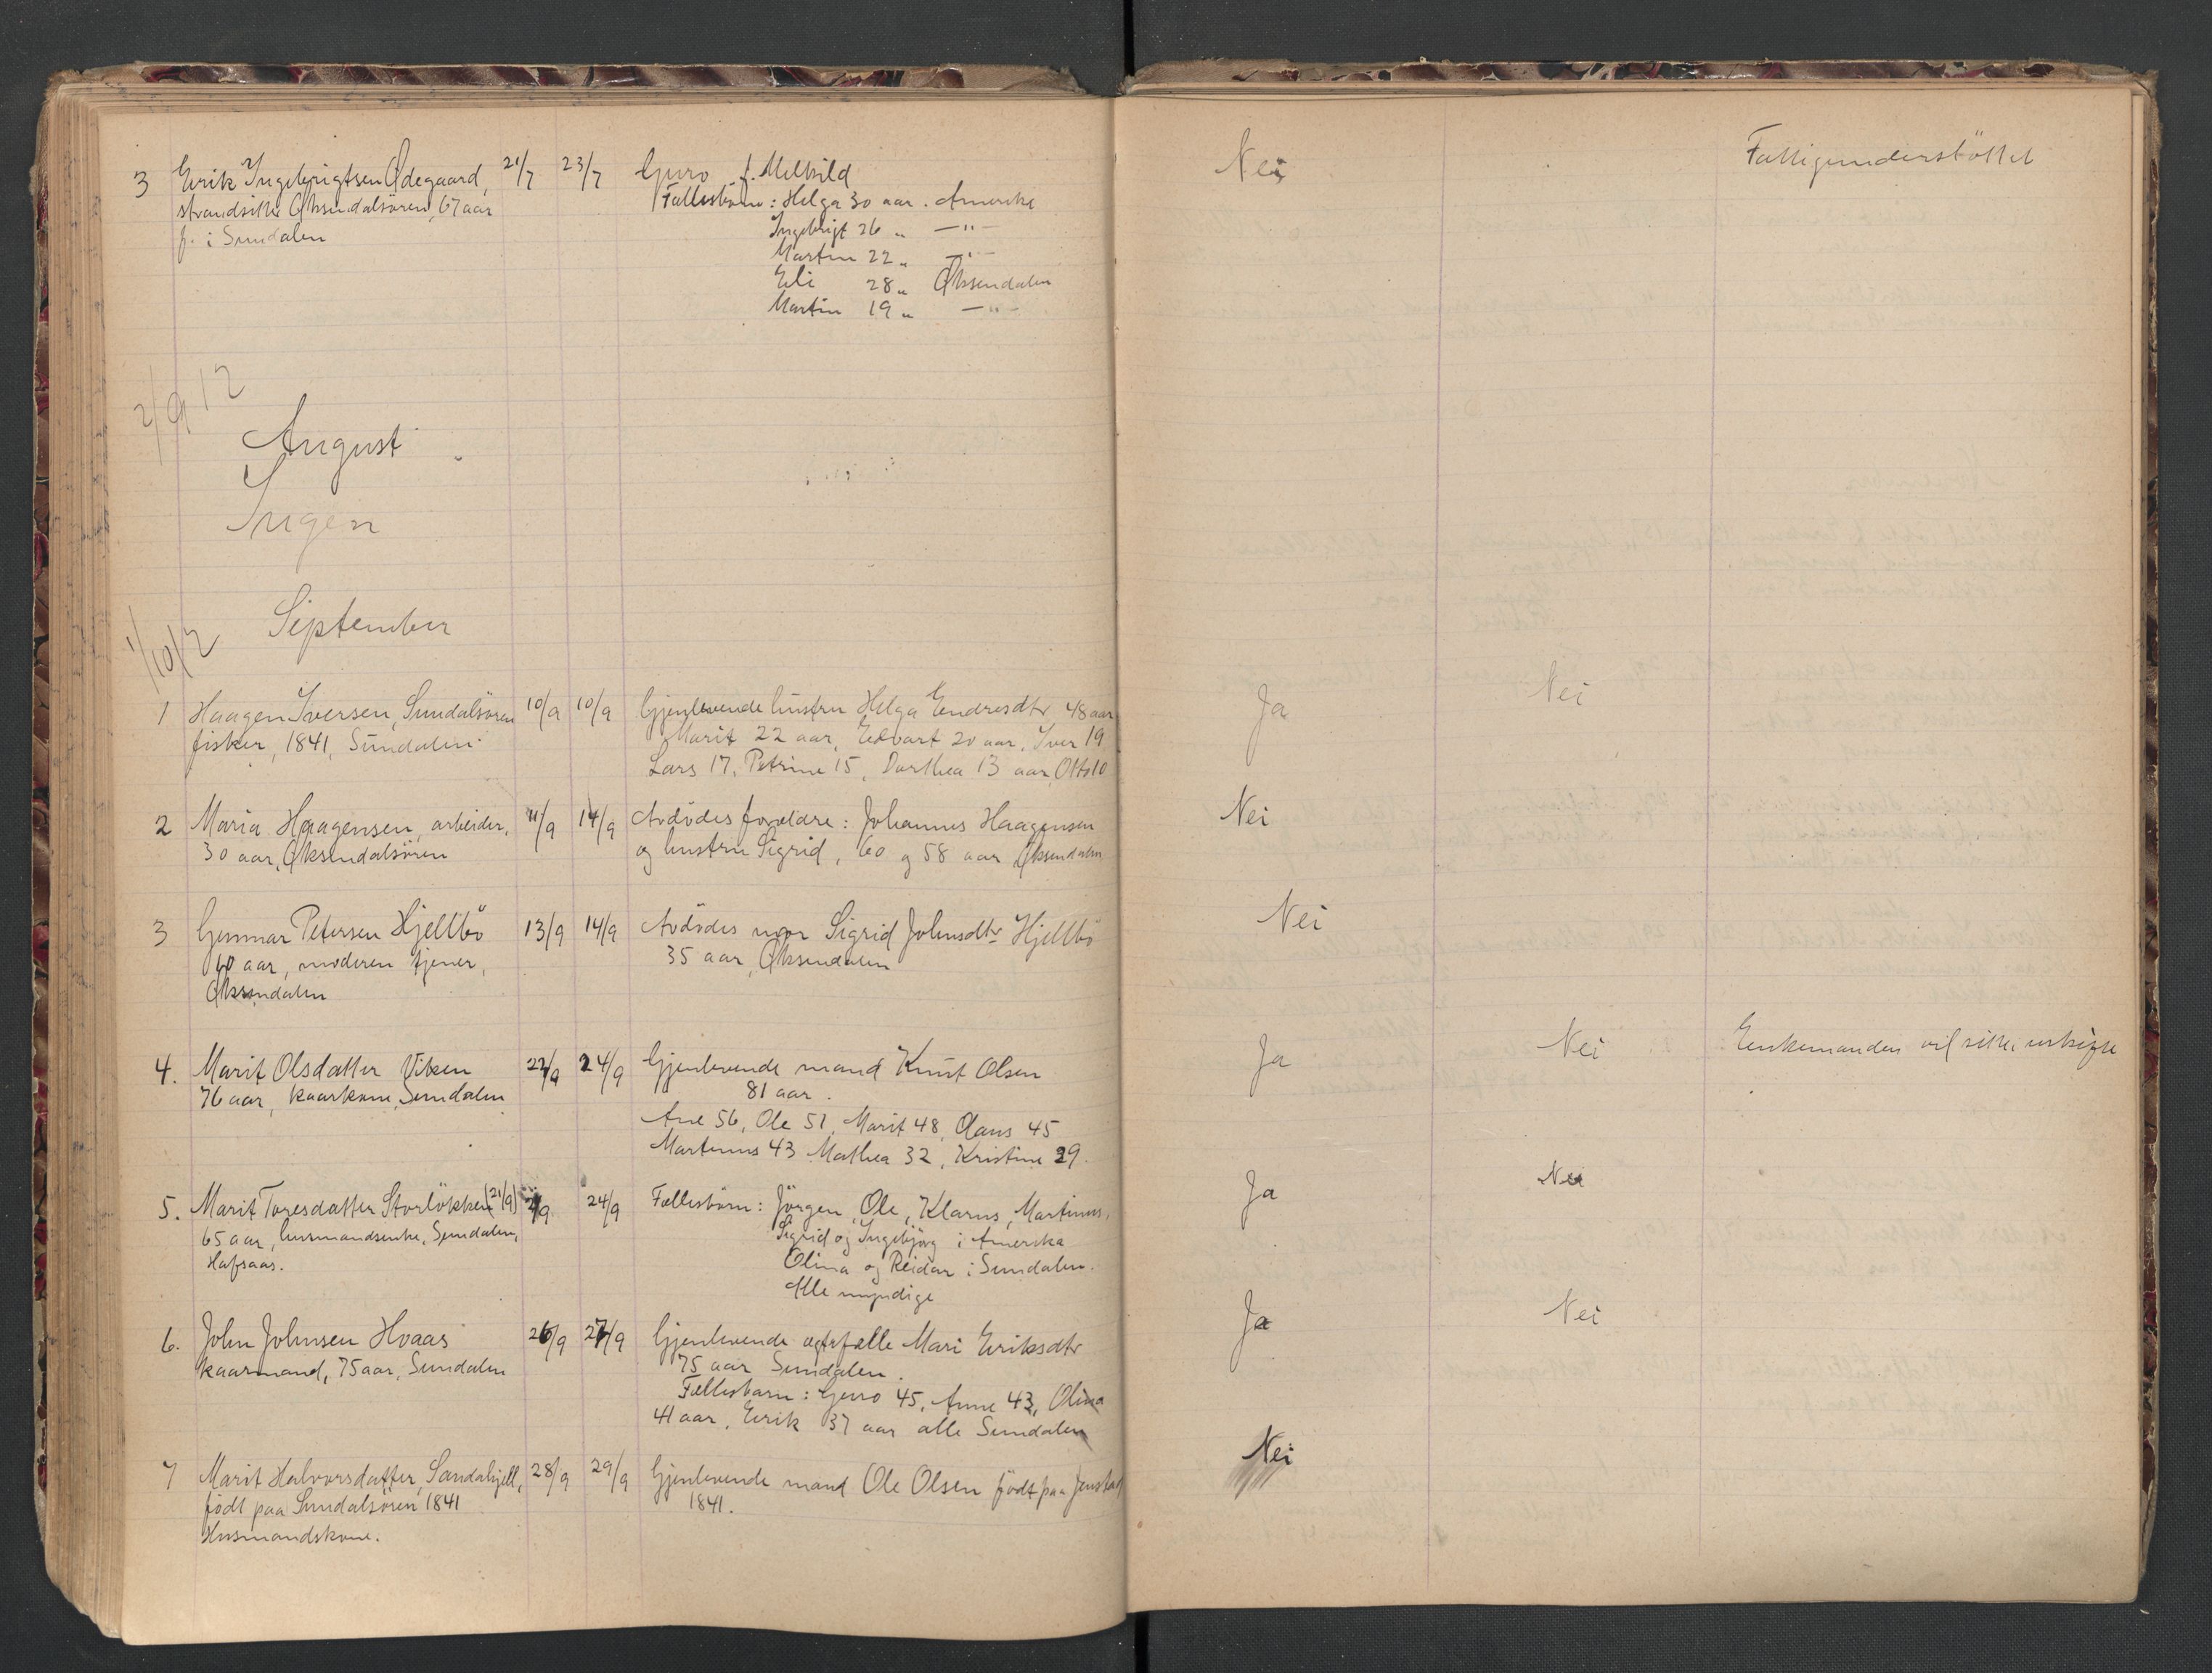 3 Erik Ingebrigtsen Ødegaard, 21/7 23/7 Guro f. Melkild Nei Fattigunderstöttet
strandsitter Øksendalsören, 67 aar Fællesbörn: Helga 30 aar. Amerika
f. i Sundalen Ingebrigt 26 „ —"—
Martin 22 „ —"—
Eli 28 „ Øksendalen
Martin 19 „ —"—
2/9 12
August
Ingen
1/10 12
September
1 Haagen Iversen, Sundalsören 10/9 10/9 Gjenlevende hustru Helga Endresdtr 48 aar Ja Nei
fisker, 1841, Sundalen Marit 22 aar, Edvart 20 aar, Iver 19
Lars 17, Petrine 15, Dorthea 13 aar, Otto 10
2 Maria Haagensen, arbeider, 11/9 14/9 Avdödes forældre: Johannes Haagensen Nei
30 aar, Øksendalsören og hustru Sigrid, 60 og 58 aar Øksendalen
3 Gunnar Petersen Hjellbö 13/9 14/9 Avdödes mor Sigrid Johnsdtr Hjellbö Nei
10 aar, moderen tjener, 35 aar, Øksendalen
Øksendalen
4. Marit Olsdatter Viken 22/9 24/9 Gjenlevende mand Knut Olsen Ja Nei Enkemanden vil sitte i uskifte
76 aar, kaarkone, Sundalen 81 aar.
Ane 56, Ole 51, Marit 48, Olaus 45
Martinus 43 Mathea 32, Kristine 29.
5. Marit Toresdatter Storlökken (21/9) 24/9 Fællesbörn: Jörgen, Ole, Klarus, Martinus, Ja Nei
65 aar, husmandsenke, Sundalen, Sigrid og Ingebjörg i Amerika
Hafsaas. Olina og Reidar i Sundalen.
Alle myndige
6. John Johnsen Hoaas 26/9 27/9 Gjenlevende egtefælle Mari Eriksdtr Ja Nei
kaarmand, 75 aar, Sundalen 75 aar Sundalen.
Fællesbarn: Guro 45, Anne 43, Olina
41 aar, Erik 37 aar alle Sundalen
7 Marit Halvorsdatter Sandahjell, 28/9 29/9 Gjenlevende mand Ole Olsen födt paa Jenstad Nei
födt paa Sundalsören 1841 1841.
Husmandskone.